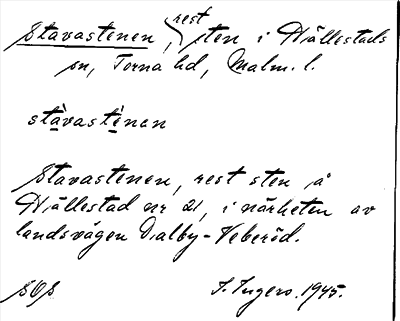 Stavastenen, rest sten i Hällestads
sn, Torna hd, Malm. l.
stàvasténen
Stavastenen, rest sten på
Hällestad nr 21, i närheten av
landsvägen Dalby-Veberöd.
SOS
S. Ingers. 1945.